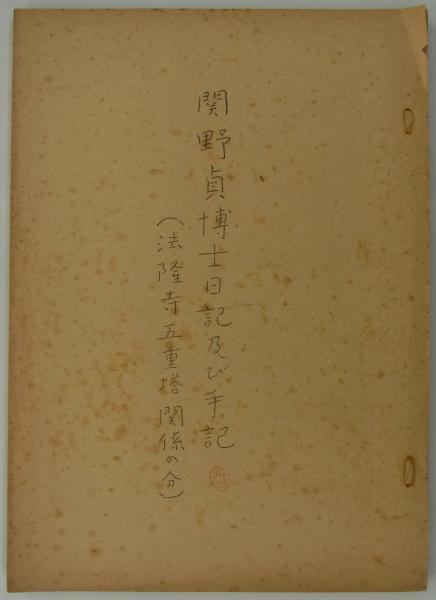 関野貞博士日記及び手記
（法隆寺五重塔関係の分）